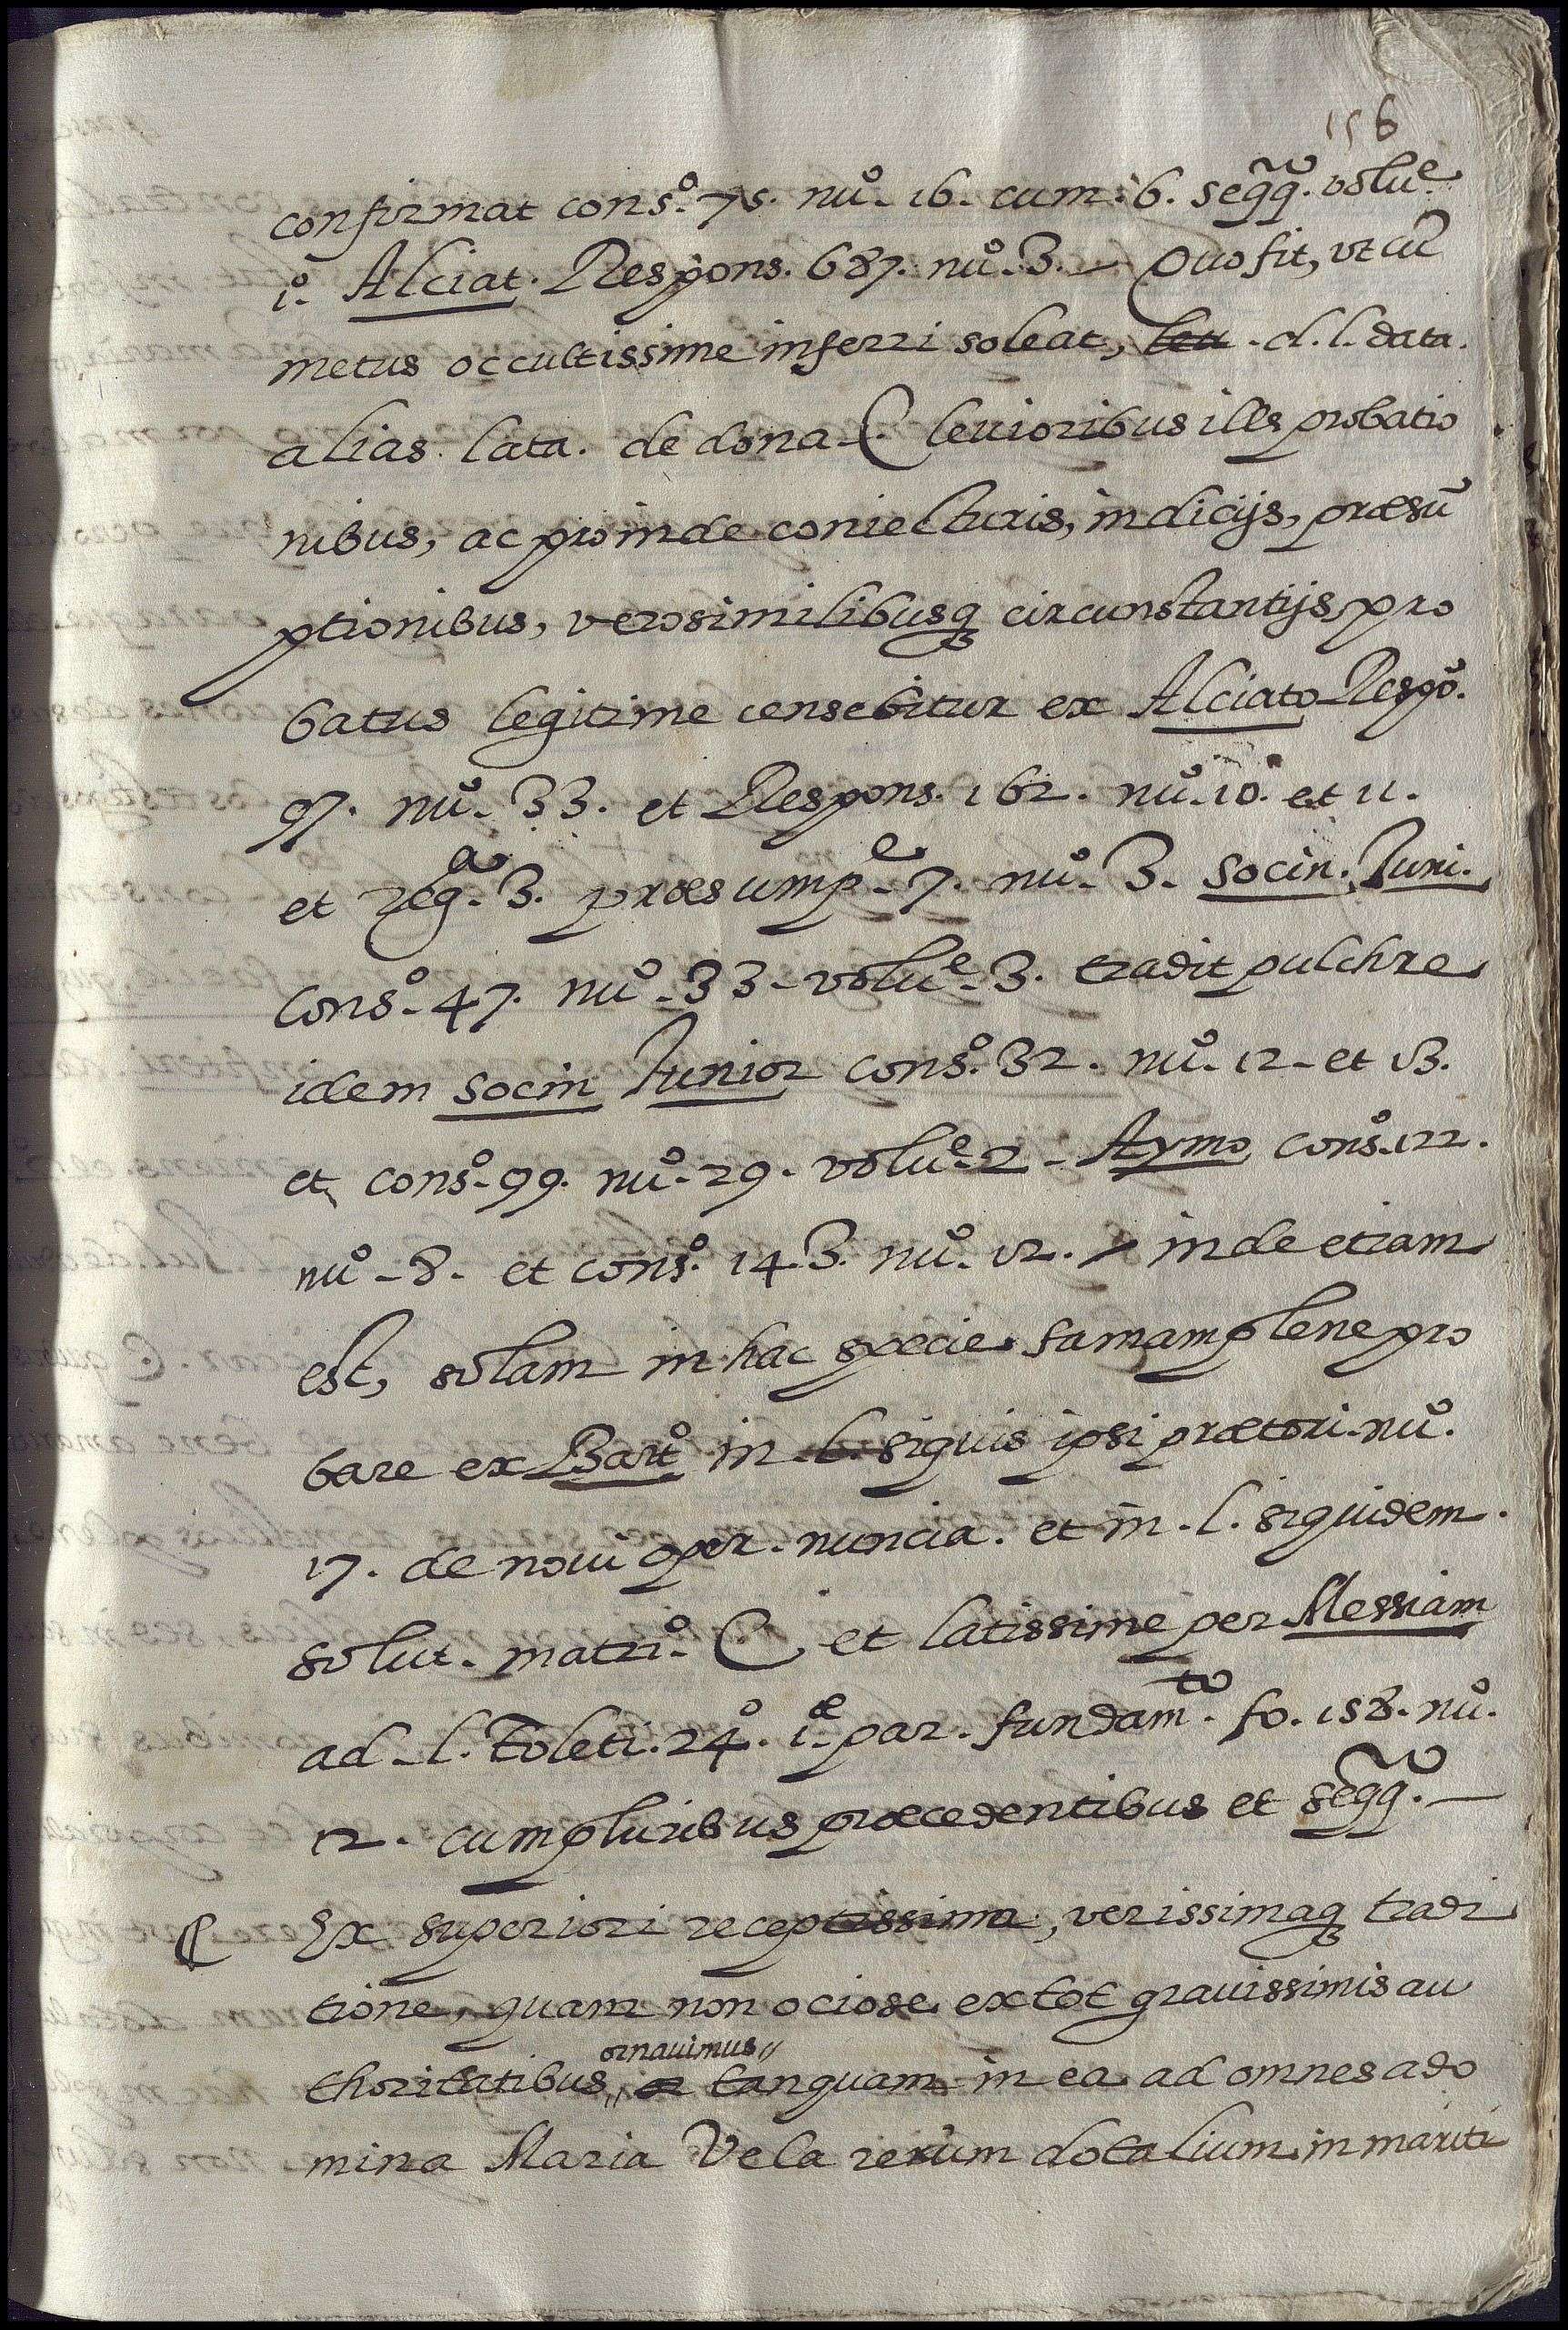 156
confirmat consº. 75. nuº. 16. cum. 6. segq̃. volue.
1º. Alciat. Respons. 687. nuº. 3. — Quo fit, vt cũ
metus occultissime inferri soleat, d. l. data.
alias lata. de dona. C. leuioribus ille probatio
nibus, ac proinde coniecturis, indicijs, præsũ
ptionibus, verosimilibusq̃ circunstantijs pro
batus legitime censebitur ex Alciato Respõ.
97. nuº. 33. et Respons. 162. nuº. 10. et 11.
et regª. 3. præsumpᵉ. 7. nuº. 3. Socin. Iuni.
Consº. 47. nuº. 33. volue. 3. tradit pulchre
idem Socin Iunior consº. 32. nuº. 12. et 13.
et consº. 99. nuº. 29. volue. 2. Aymo consº. 122.
nuº. 8. et consº. 143. nuº. 12. / inde etiam
est, solam in hac specie famam plene pro
bare ex Bartº. in l. siquis ipsi prætori. nuº.
17. de noui oper. nuncia. et in l. siquidem.
solut. matriº. C. et latissime per Messiam
ad l. Toleti. 24º. 1ᵉ. par. fundamᵗᵒ. fo. 158. nuº.
12. cum pluribus præcedentibus et segq̃. —
₡ Ex superiori receptissima, verissimaq̃ tradi
tione, quam non ociose ex tot grauissimis au
ornauimus//
thoritatibus,// tanquam in ea ad omnes a do
mina Maria Vela rerum dotalium in mariti